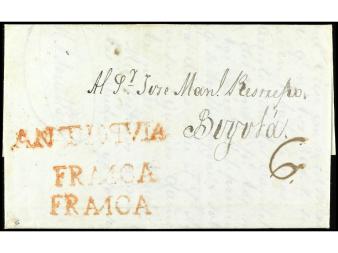 Al Sr. Jose Manl. Restrepo.
Bogotá.
ANTIOQUIA
6
FRANCA
FRANCA